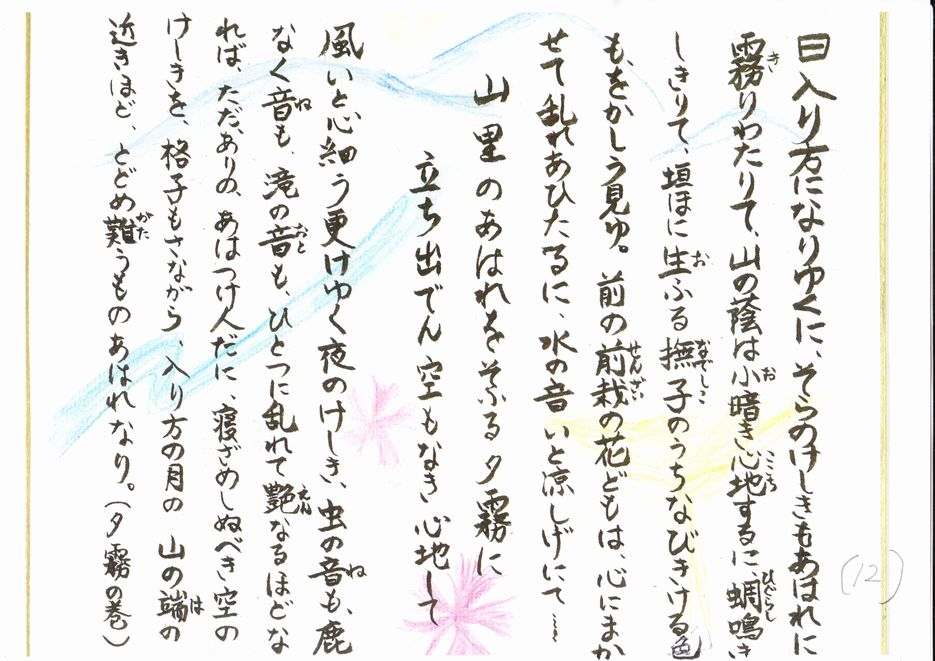 日入り方になりゆくに、そらのけしきもあはれに
霧りわたりて、山の蔭は小暗き心地するに、蜩鳴き
しきりて、垣ほに生ふる撫子のうちなびきける色
も、をかしう見ゆ。前の前栽の花どもは、心にまか
せて乱れあひたるに、水の音いと涼しげにて……
山里のあはれをそふる夕霧に
立ち出でん空もなき心地して
風いと心細う更けゆく夜のけしき、虫の音も、鹿
なく音も、滝の音も、ひとつに乱れて艶なるほどな
れば、ただ、ありの、あはつけ人だに、寝ざめしぬべき空の
けしきを、格子もさながら、入り方の月の山の端の
近きほど、とどめ難うものあはれなり。(夕霧の巻)
(12)